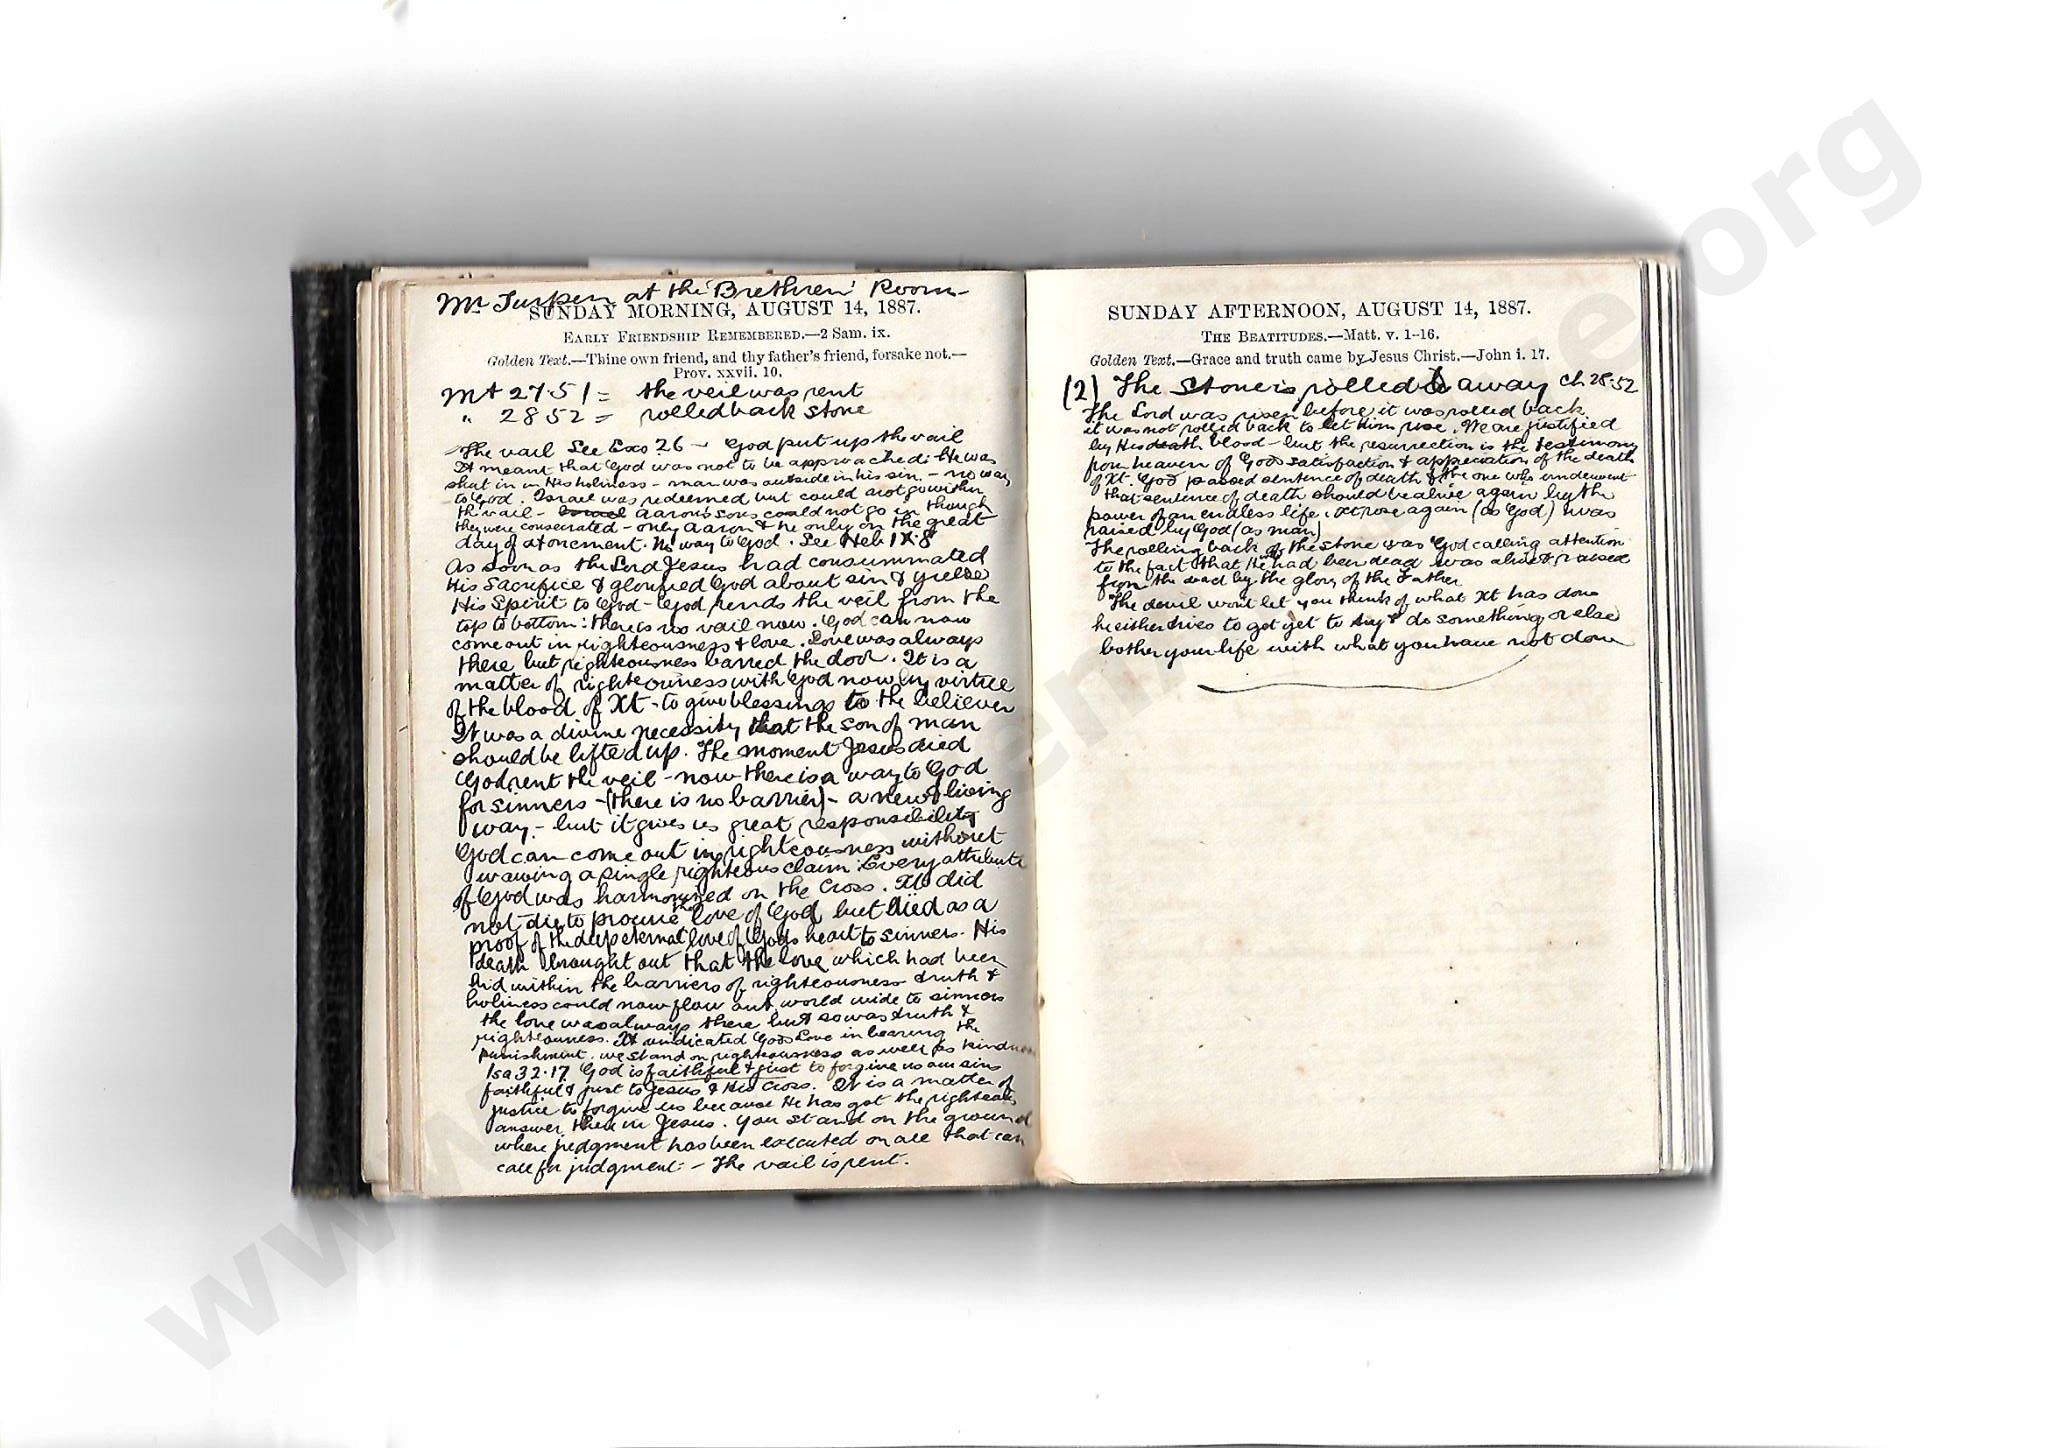 Mr Turpin at the 'Brethren' Room
SUNDAY MORNING, AUGUST 14, 1887.
EARLY FRIENDSHIP REMEMBERED.—2 Sam. ix.
Golden Text.—Thine own friend, and thy father's friend, forsake not.—
Prov. xxvii. 10.
Mt 27.51 = the veil was rent
" 28 52 = rolled back stone
The vail See Exo 26 - God put up the vail
It meant that God was not to be approached: He was
shut in in His holiness - man was outside in his sin - no way
to God. Israel was redeemed but could not go within
the vail - Israel Aaron's sons could not go in though
they were consecrated - only Aaron & he only on the great
day of atonement. No way to God. See Heb 1X.8
As soon as the Lord Jesus had consummated
His Sacrifice & glorified God about sin &
His Spirit to God - God rends the veil from the
top to bottom: there is no vail now. God can now
come out in righteousness & love. Love was always
there but righteousness barred the door. It is a
matter of righteousness with God now by virtue
of the blood of Xt - to give blessings to the believer
It was a divine necessity that the son of man
should be lifted up. The moment Jesus died
God rent the veil - now there is a way to God
for sinners - (there is no barrier) - a new & living
way - but it gives us great responsibility
God can come out in righteousness without
waiving a single righteous claim. Every attribute
of God was harmonized on the Cross. Xt did
not die to procure the love of God but died as a
proof of the deep eternal love of Gods heart to sinners. His
death brought out that the love which had been
hid within the barriers of righteousness truth &
holiness could now flow out world wide to sinners
the love was always there but so was truth &
righteousness. Xt vindicated Gods Love in bearing the
punishment. we stand on righteousness as well as kindness
Isa 32.17 God is faithful & just to forgive us our sins
faithful & just to Jesus & His Cross. It is a matter of
justice to forgive us because He has got the righteous
answer there in Jesus. You stand on the ground
where judgment has been executed on all that can
call for judgment: - The vail is rent.
SUNDAY AFTERNOON, AUGUST 14, 1887.
THE BEATITUDES.—Matt. v. 1-16.
Golden Text.—Grace and truth came by Jesus Christ.—John i. 17.
(2) The Stone is rolled away ch 28.52
The Lord was risen before it was rolled back
it was not rolled back to let Him rise. We are justified
by His death blood - but the resurrection is the testimony
from heaven of Gods satisfaction & appreciation of the death
of Xt. God passed sentence of death & the one who underwent
that sentence of death should be alive again by the
power of an endless life. Xt rose again (as God) & was
raised by God (as man)
The rolling back of the stone was God calling attention
to the fact that He who had been dead was alive & raised
from the dead by the glory of the Father
The devil wont let you think of what Xt has done
he either tries to get yet to & do something or else
bother your life with what you have not done